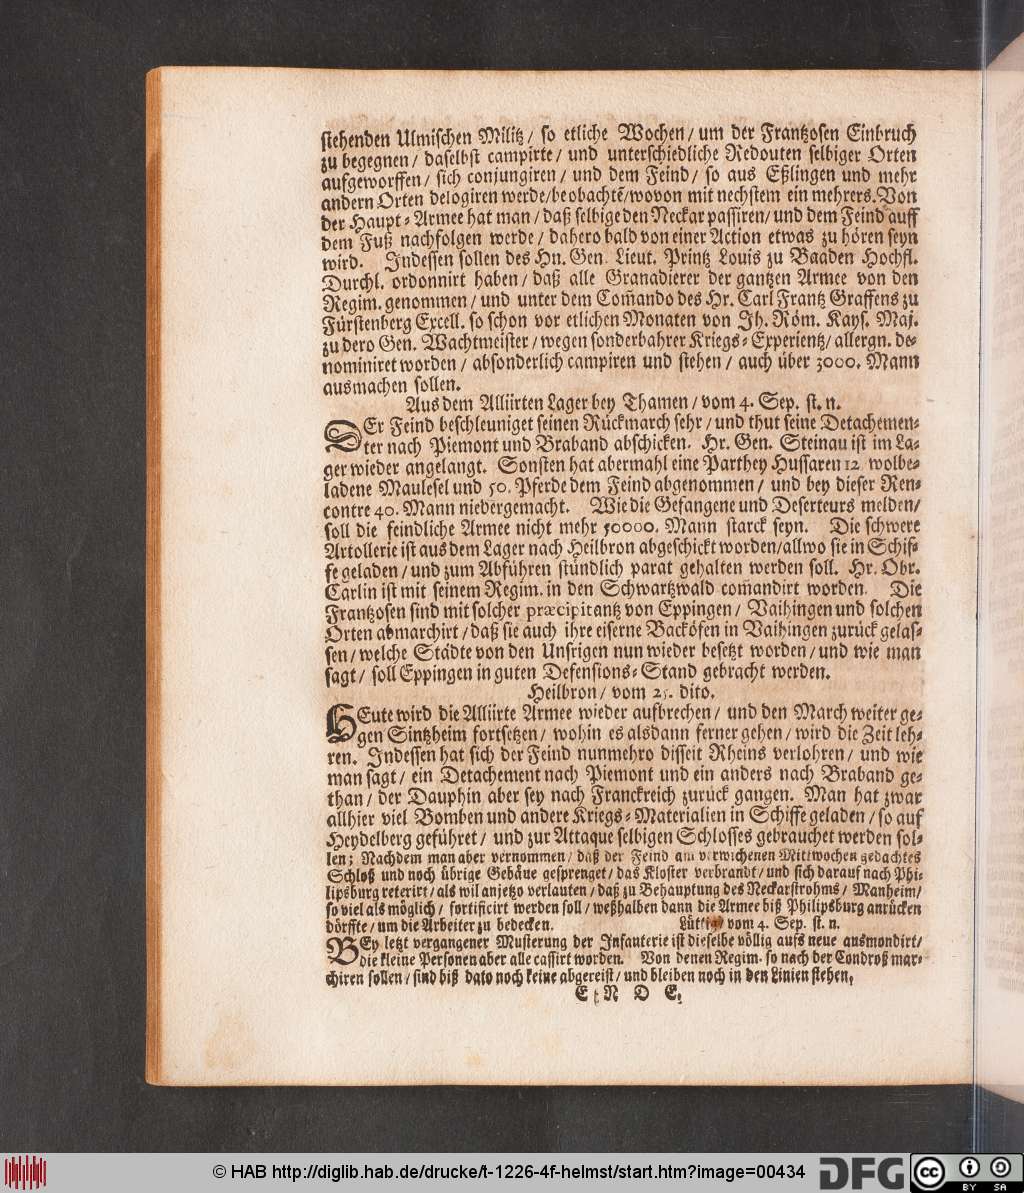 stehenden Ulmischen Militz/ so etliche Wochen/ um der Frantzosen Einbruch
zu begegnen/ daselbst campirte/ und unterschiedliche Redouten selbiger Orten
aufgeworffen/ sich conjungiren/ und dem Feind/ so aus Eßlingen und mehr
andern Orten delogiren werde/beobachtẽ/wovon mit nechstem ein mehrers. Von
der Haupt-Armee hat man/ daß selbige den Neckar passiren/ und dem Feind auff
dem Fuß nachfolgen werde/ dahero bald von einer Action etwas zu hören seyn
wird. Indessen sollen des Hn. Gen. Lieut. Printz Louis zu Baaden Hochfl.
Durchl. ordonnirt haben/ daß alle Granadierer der gantzen Armee von den
Regim. genommen/ und unter dem Com̃ando des Hr. Carl Frantz Graffens zu
Fürstenberg Excell. so schon vor etlichen Monaten von Ih. Röm. Kays. Maj.
zu dero Gen. Wachtmeister/ wegen sonderbahrer Kriegs-Experientz/ allergn. de-
nominiret worden/ absonderlich campiren und stehen/ auch über 3000. Mann
ausmachen sollen.
Aus dem Alliirten Lager bey Thamen/ vom 4. Sep. st. n.
DEr Feind beschleuniget seinen Rückmarch sehr/ und thut seine Detachemen-
ter nach Piemont und Braband abschicken. Hr. Gen. Steinau ist im La-
ger wieder angelangt. Sonsten hat abermahl eine Parthey Hussaren 12 wolbe-
ladene Maulesel und 50. Pferde dem Feind abgenommen/ und bey dieser Ren-
contre 40. Mann niedergemacht. Wie die Gefangene und Deserteurs melden/
soll die feindliche Armee nicht mehr 50000. Mann starck seyn. Die schwere
Artollerie ist aus dem Lager nach Heilbron abgeschickt worden/allwo sie in Schif-
fe geladen/ und zum Abführen stündlich parat gehalten werden soll. Hr. Obr.
Carlin ist mit seinem Regim. in den Schwartzwald com̃andirt worden. Die
Frantzosen sind mit solcher præcipitantz von Eppingen/ Vaihingen und solchen
Orten abmarchirt/ daß sie auch ihre eiserne Backöfen in Vaihingen zurück gelas-
sen/ welche Städte von den Unsrigen nun wieder besetzt worden/ und wie man
sagt/ soll Eppingen in guten Defensions-Stand gebracht werden.
Heilbron/ vom 25. dito.
HEute wird die Alliirte Armee wieder aufbrechen/ und den March weiter ge-
gen Sintzheim fortsetzen/ wohin es alsdann ferner gehen/ wird die Zeit leh-
ren. Indessen hat sich der Feind nunmehro disseit Rheins verlohren/ und wie
man sagt/ ein Detachement nach Piemont und ein anders nach Braband ge-
than/ der Dauphin aber sey nach Franckreich zurück gangen. Man hat zwar
allhier viel Bomben und andere Kriegs-Materialien in Schiffe geladen/ so auf
Heydelberg geführet/ und zur Attaque selbigen Schlosses gebrauchet werden sol-
len; Nachdem man aber vernommen/ daß der Feind am verwichenen Mittwochen gedachtes
Schloß und noch übrige Gebäue gesprenget/ das Kloster verbrandt/ und sich darauf nach Phi-
lipsburg reterirt/ als wil anjetzo verlauten/ daß zu Behauptung des Neckarstrohms/ Manheim/
so viel als möglich/ fortificirt werden soll/ weßhalben dann die Armee biß Philipsburg anrücken
dörffte/ um die Arbeiter zu bedecken. Lüttig/ vom 4. Sep. st. n.
BEy letzt vergangener Musterung der Infanterie ist dieselbe völlig aufs neue ausmondirt/
die kleine Personen aber alle cassirt worden. Von denen Regim. so nach der Condroß mar-
chiren sollen/ sind biß dato noch keine abgereist/ und bleiben noch in den Linien stehen.
E N D E.
© HAB http://diglib.hab.de/drucke/t-1226-4f-helmst/start.htm?image=00434
DFG
cc BY SA